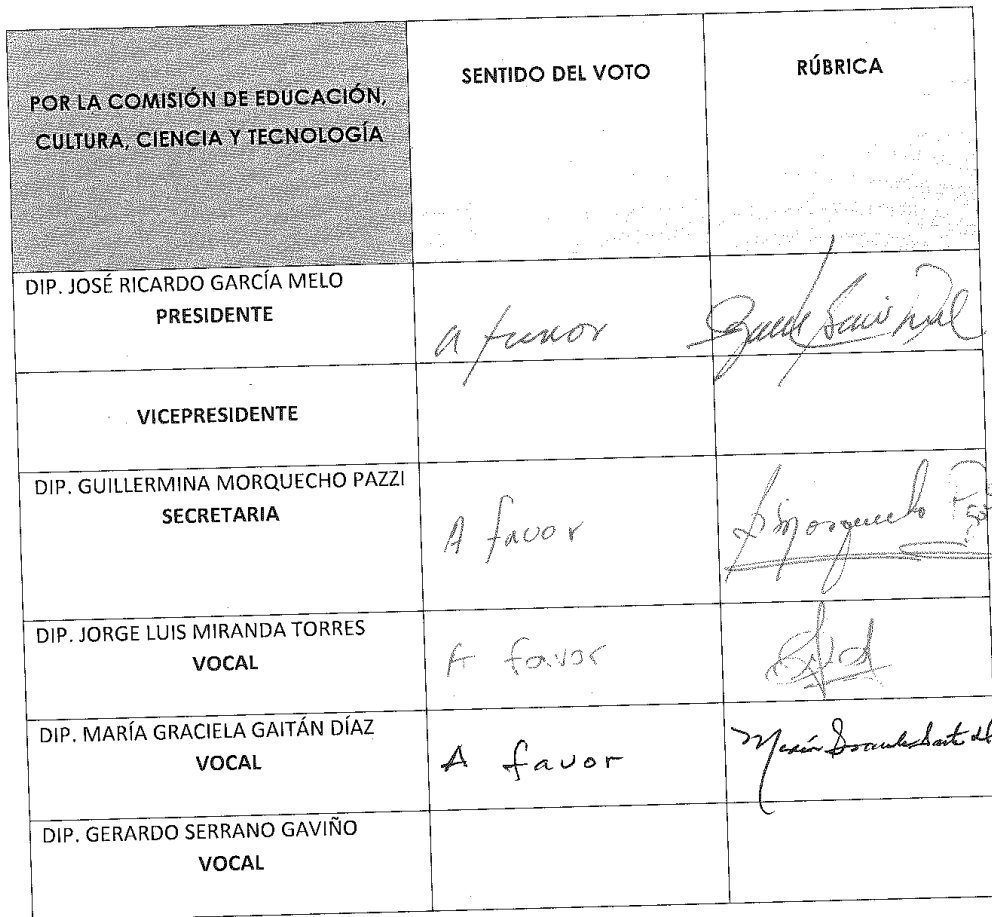 POR LA COMISIÓN DE EDUCACIÓN,
CULTURA, CIENCIA Y TECNOLOGÍA
SENTIDO DEL VOTO
RÚBRICA
DIP. JOSÉ RICARDO GARCÍA MELO
PRESIDENTE
a favor
VICEPRESIDENTE
DIP. GUILLERMINA MORQUECHO PAZZI
SECRETARIA
A favor
DIP. JORGE LUIS MIRANDA TORRES
VOCAL
A favor
DIP. MARÍA GRACIELA GAITÁN DÍAZ
VOCAL
A favor
DIP. GERARDO SERRANO GAVIÑO
VOCAL